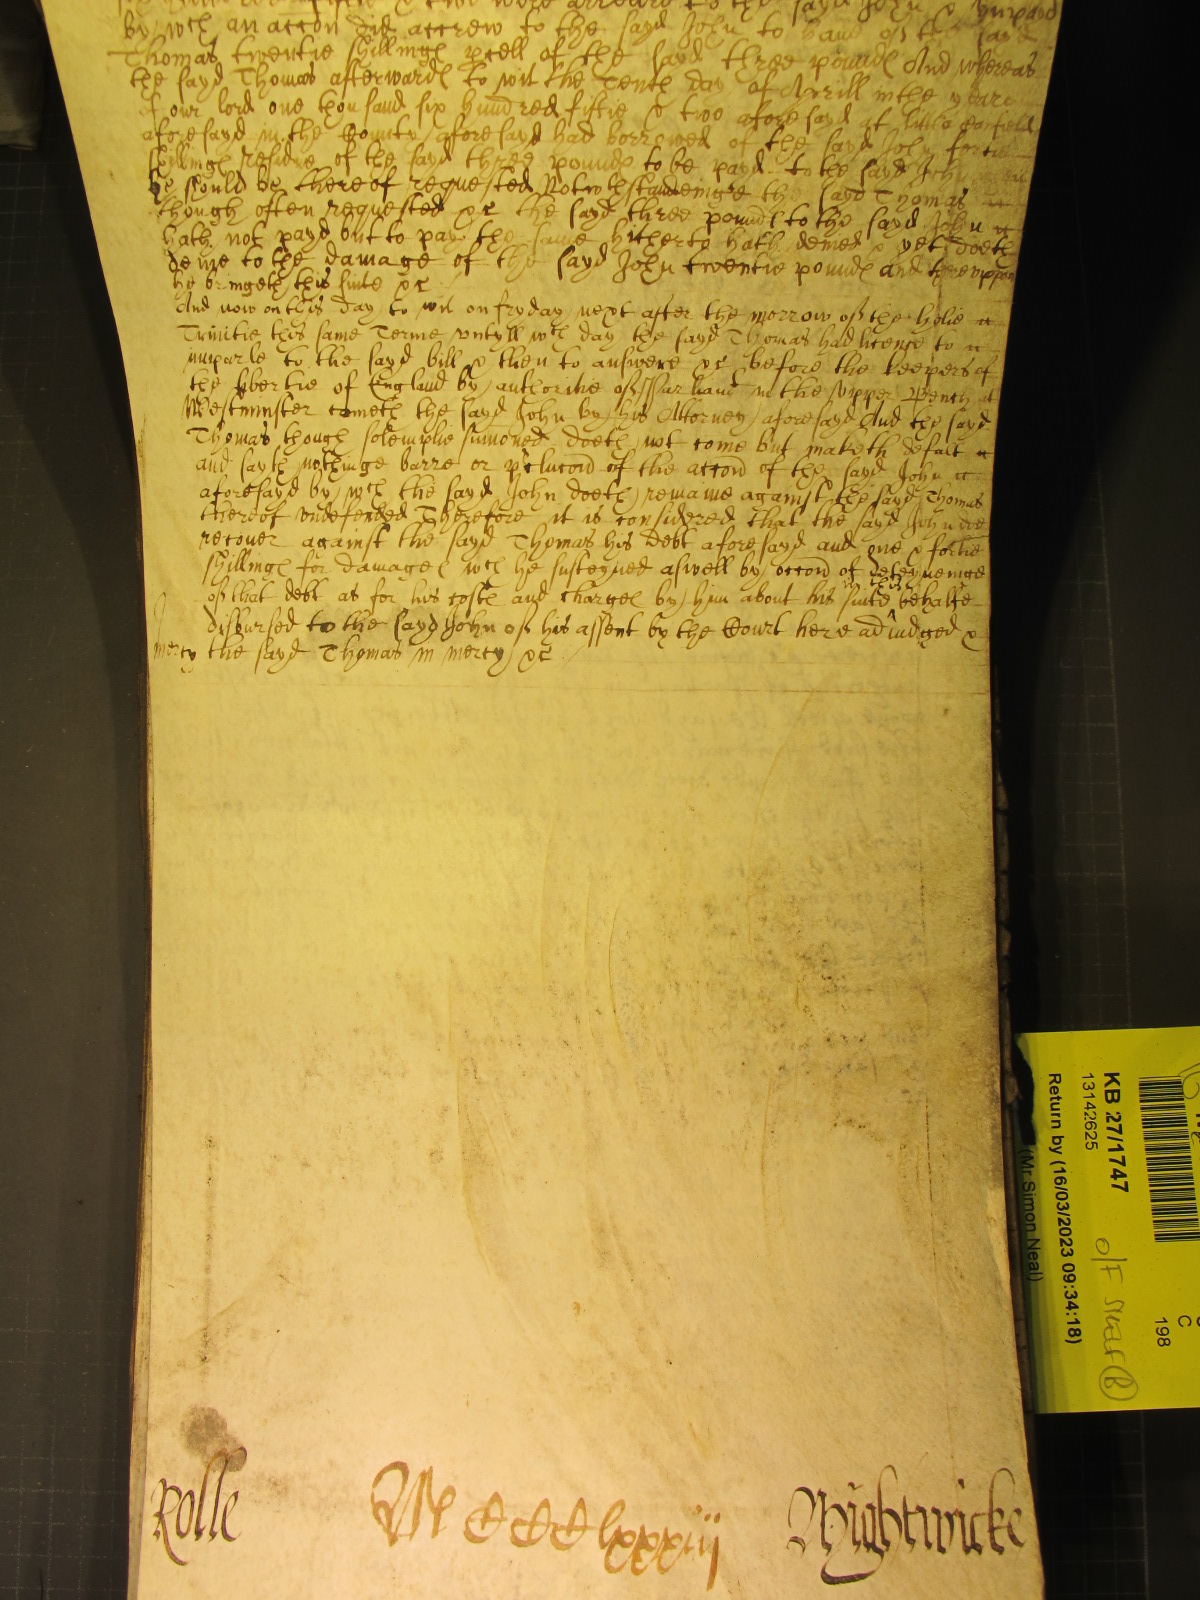 fiftie & two were arreare to the sayd John & unpayd
by wch an accon did accrew to the sayd John to have of the sayd
Thomas twentie shillings pcell of the sayd three pounds And whereas
the sayd Thomas afterwards to wit the tenth day of Aprill in the yeare
of our lord one thousand six hundred fiftie & two aforesayd at little
aforesayd in the County aforesayd had borrowed of the sayd John fortie
shillings residue of the sayd three pounds to be payd to the sayd John
he should be thereof requested Notwthstandeinge the sayd Thomas
though often requested &c the sayd three pounds to the sayd John
hath not payd but to pay the same hitherto hath denied & yet doeth
denie to the damage of the sayd John twentie pounds and thereuppon
he bringeth this suite &c
And now on this day to wit on fryday next after the morrow of the holie
Trinitie this same Terme untyll wch day the sayd Thomas had licence to
imparle to the sayd bill & then to answere &c before the keepers of
the libertie of England by authoritie of Parliamt in the upper Bench at
Westminster cometh the sayd John by his Attorney aforesayd And the sayd
Thomas though solemplie sumoned doeth not come but maketh default
and sayth nothinge in barre or pclucon of the accon of the sayd John
aforesayd by wch the sayd John doeth remaine against the sayd Thomas
thereof undefended Therefore it is considered that the sayd John doe
recover against the sayd Thomas his debt aforesayd and one & fortie
shillings for damages wch he susteyned aswell by occon of deteyneinge
of that debt as for his costs and charges by him about his suite in this behalfe
disbursed to the sayd John of his assent by the Court here adiudged &
mercy the sayd Thomas in mercy &c
Rolle MCCClxxxiij Nightwicke
KB 27/1747
13142625
Return by (16/03/2023 09:34:18)
(Mr Simon Neal)
C
198